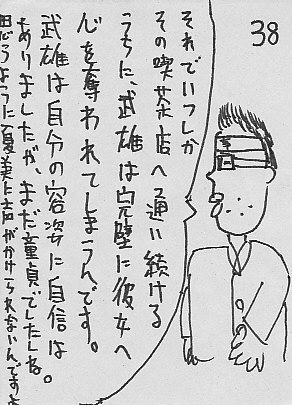 38
それでいつしか
その喫茶店へ通い続ける
うちに、武雄は完璧に彼女へ
心を奪われてしまうんです。
武雄は自分の容姿に自信は
ありましたが、まだ童貞でしたね。
思うように夏美に声がかけられないんですよ